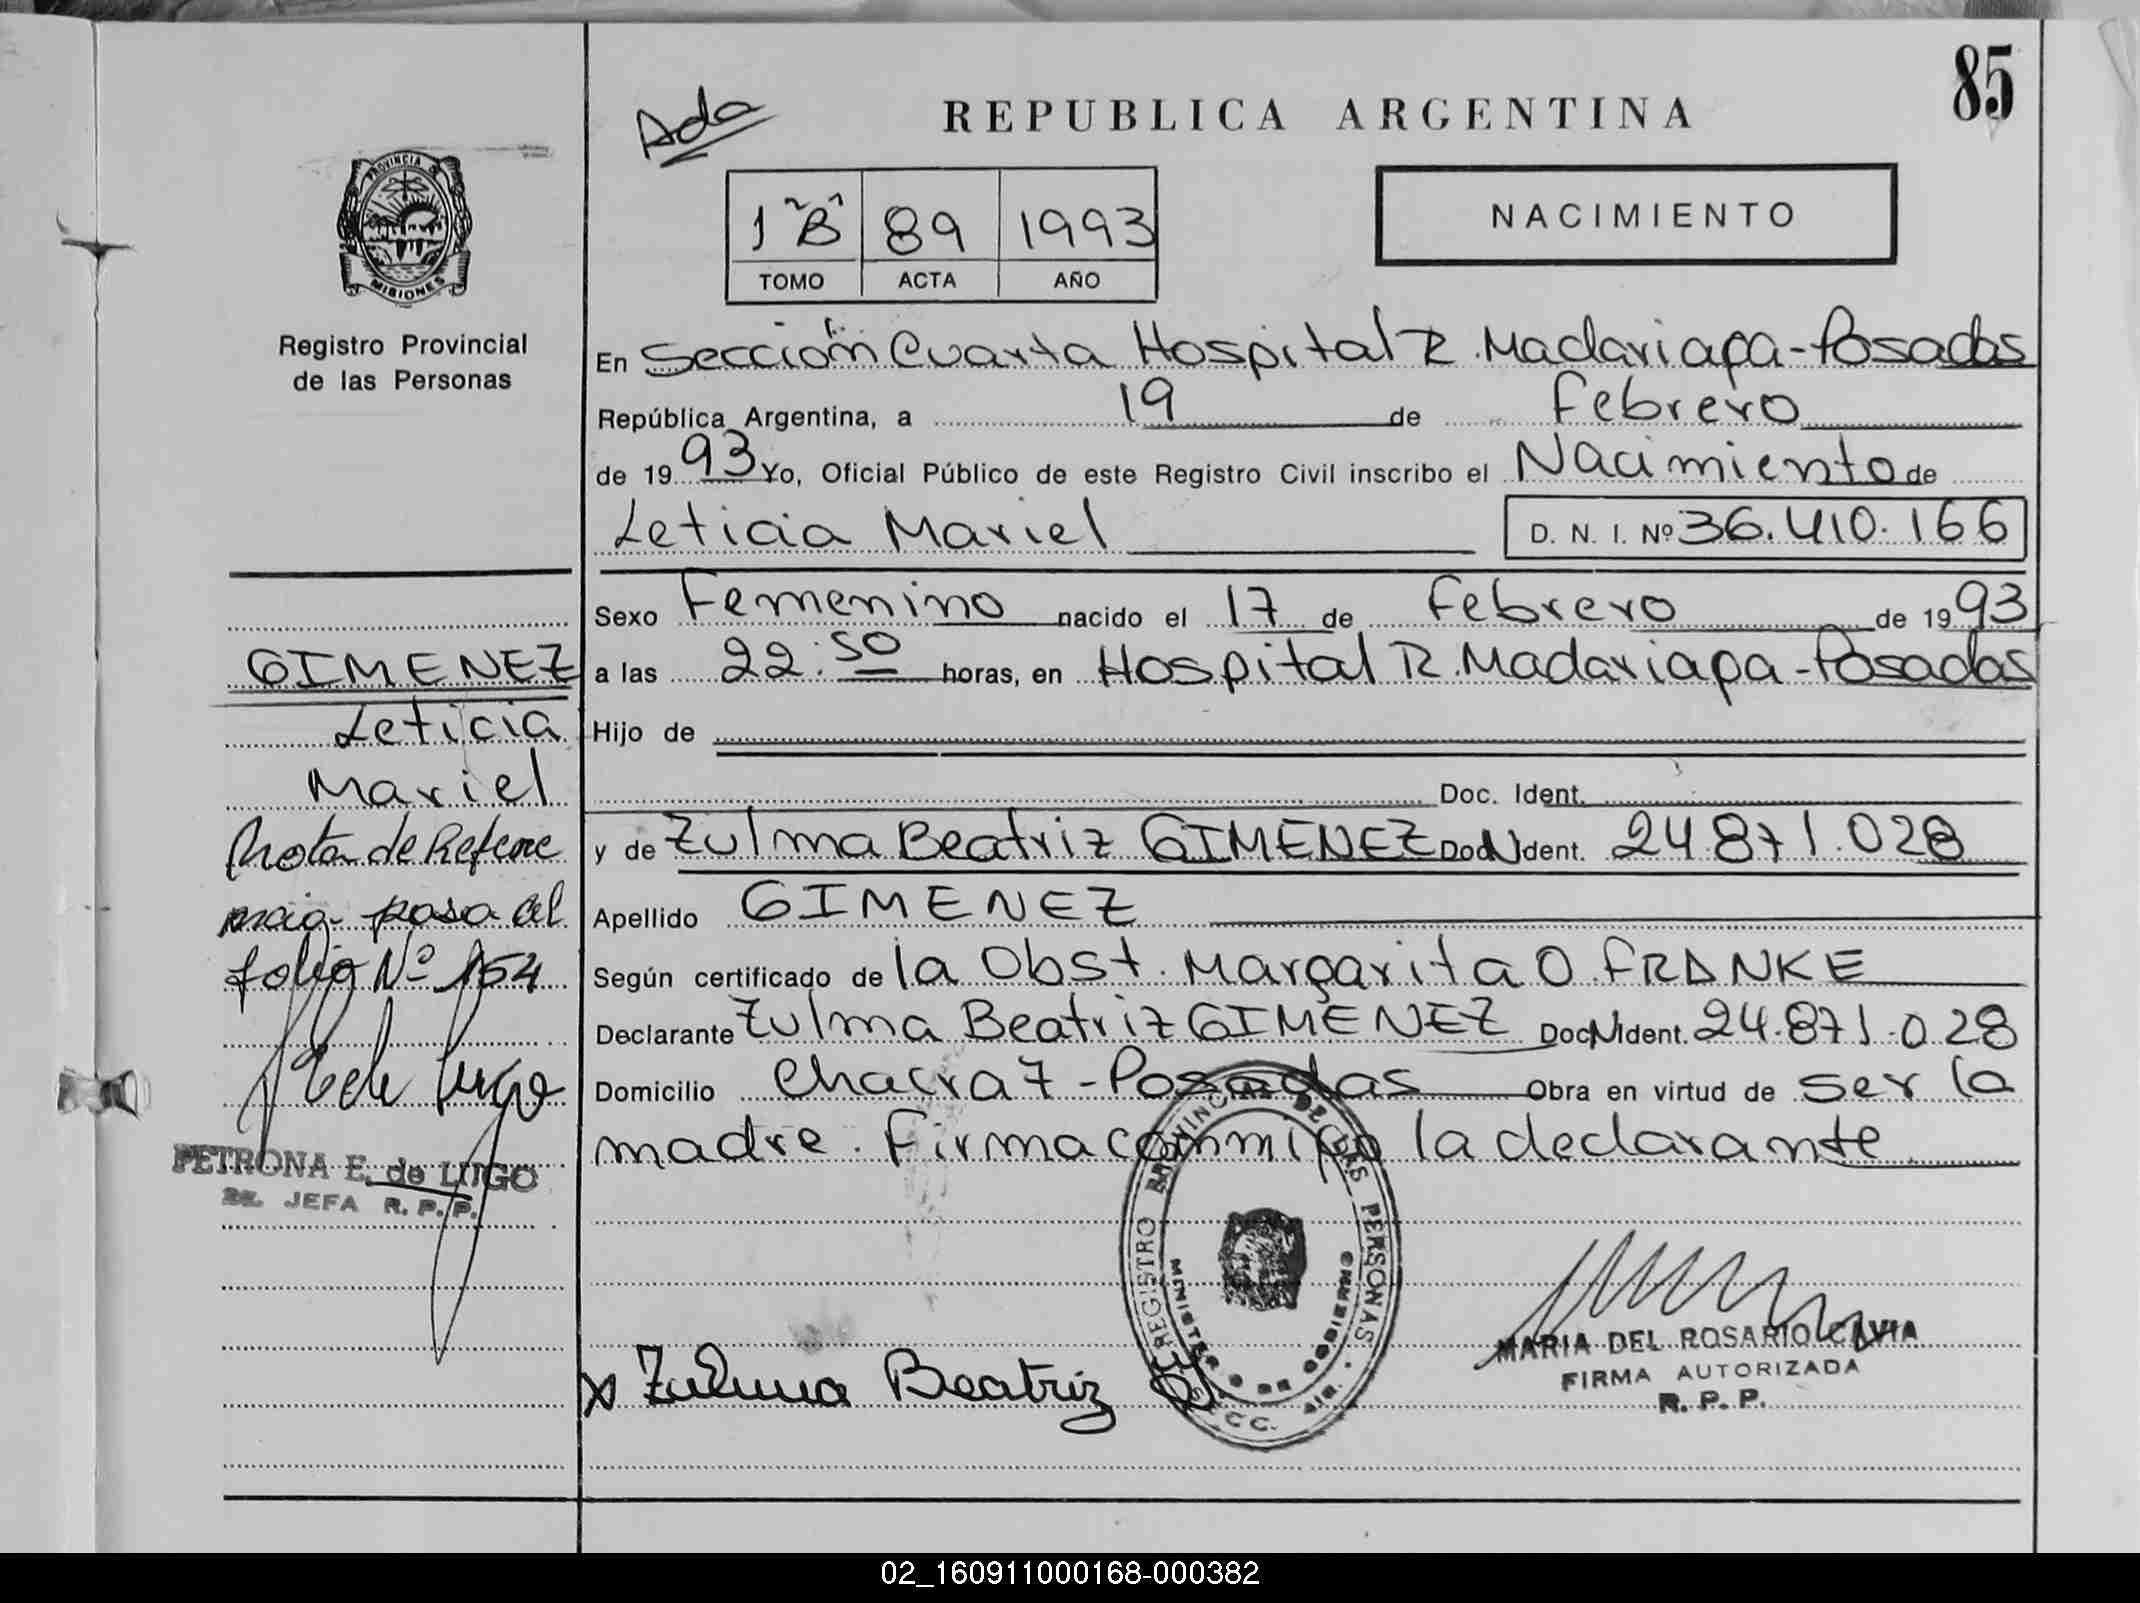 85
Ada
REPUBLICA ARGENTINA
PROVINCIA DE
MISIONES
Registro Provincial
de las Personas
1 "B" 89 1993
TOMO ACTA AÑO
NACIMIENTO
En Sección Cuarta Hospital R. Madariaga - Posadas
República Argentina, a 19 de Febrero
de 1993 Yo, Oficial Público de este Registro Civil inscribo el Nacimiento de
Leticia Mariel D. N. I. Nº 36.410.166
Sexo Femenino nacido el 17 de Febrero de 1993
a las 22:50 horas, en Hospital R. Madariaga - Posadas
Hijo de
Doc. Ident.
y de Zulma Beatriz GIMENEZ Doc. N Ident. 24.871.028
Apellido GIMENEZ
Según certificado de la Obst. Margarita O. FRANKE
Declarante Zulma Beatriz GIMENEZ Doc. N Ident. 24.871.028
Domicilio Chacra 7 - Posadas Obra en virtud de ser la
madre. Firma conmigo la declarante
GIMENEZ
Leticia
Mariel
Nota de Referencia pasa al
folio Nº 154
PETRONA E. de LUGO
JEFA R. P. P.
REGISTRO PROVINCIAL DE LAS PERSONAS
MINISTERIO DE GOBIERNO
x Zulma Beatriz
MARIA DEL ROSARIO CAVIA
FIRMA AUTORIZADA
R. P. P.
02_160911000168-000382